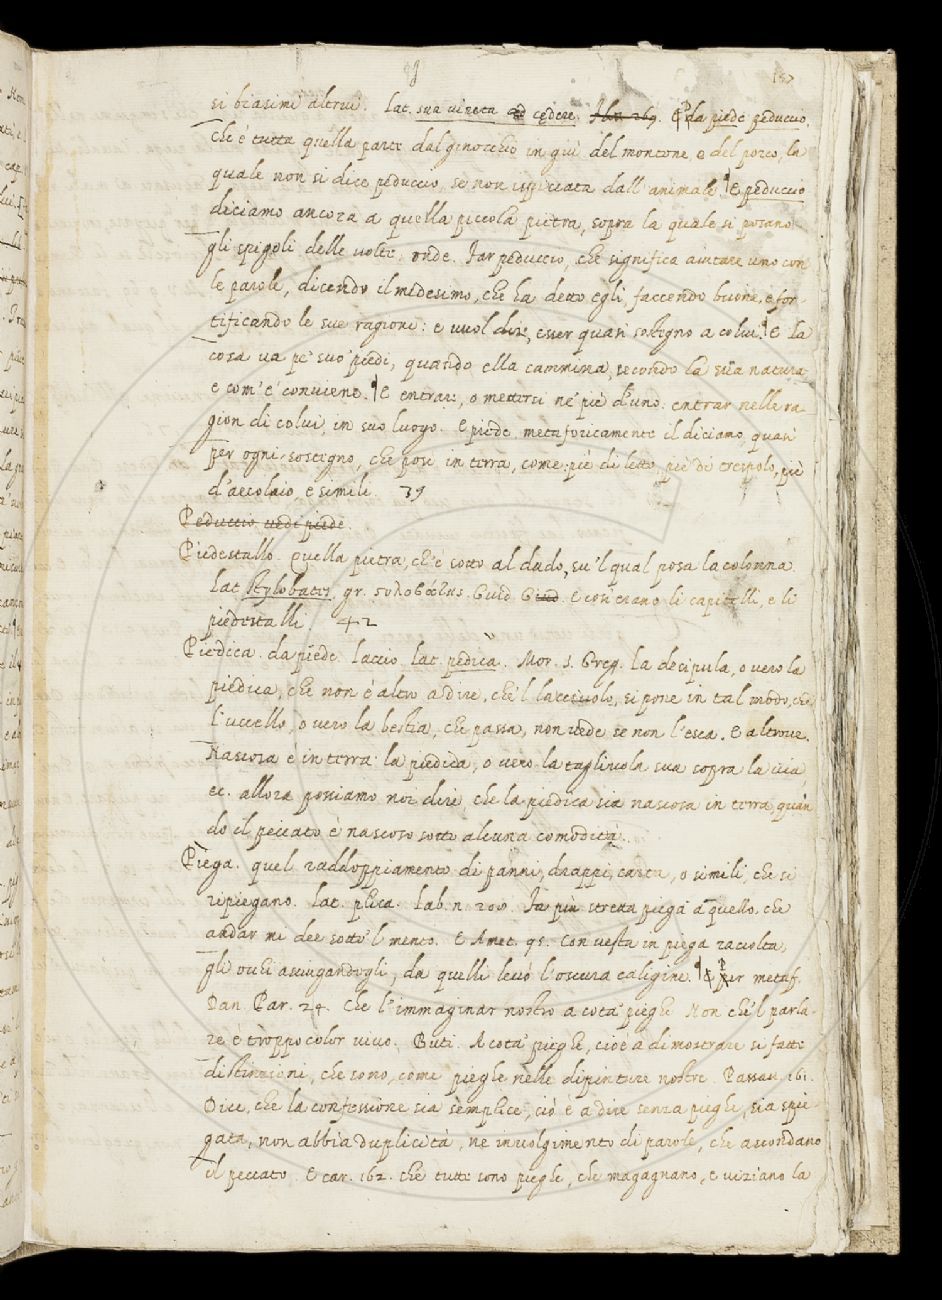 157
si biasimi altrui. Lat. sua vineta cedere. E da piede peduccio,
che è tutta quella parte dal ginocchio in giù del montone, e del porco, la
quale non si dice peduccio, se non ispiccata dall'animale. E peduccio
diciamo ancora a quella piccola pietra, sopra la quale si posano
gli spigoli delle volte, onde. Far peduccio, che significa aiutare uno con
le parole, dicendo il medesimo, che ha detto egli, faccendo buone, e for-
tificando le sue ragioni: e vuol dire, esser quasi sostegno a colui. E la
cosa va pe' suo' piedi, quando ella cammina, secondo la sua natura
e com'e' conviene. E entrare, o mettersi ne' piè d'uno: entrar nelle ra-
gion di colui, in suo luogo. E piede, metaforicamente il diciamo, quasi
per ogni sostegno, che posi in terra, come: piè di letto, piè di trespolo, piè
d'arcolaio, e simili. 39
Peduccio vedi piede.
Piedestallo. Quella pietra, ch'è sotto al dado, su 'l qual posa la colonna.
Lat. stylobates, gr. Guid. E così erano li capitelli, e li
piedestalli. 42
Piedica. da piede. laccio. lat. pedica. Mor. S. Greg. La decipula, o vero la
piedica, che non è altro a dire, che 'l lacciuolo, si pone in tal modo, che
l'uccello, o vero la bestia, che passa, non vede se non l'esca. E altrove.
Nascosa è in terra la piedica, o vero la tagliuola sua sopra la via,
ec. allora possiamo noi dire, che la piedica sia nascosa in terra, quan
do il peccato è nascoso sotto alcuna comodità.
Piega. quel raddoppiamento di panni, drappi, carta, o simili, che si
ripiegano. Lat. plica. Lab. n. 208. Fa più stretta piega a quello, che
andar mi dee sotto 'l mento. E Amet. 95. Con vesta in piega raccolta,
gli occhi asciugandogli, da quelli levò l'oscura caligine. E per metaf.
Dan. Par. 24. Che l'immaginar nostro a cota' pieghe Non che 'l parla-
re è troppo color vivo. Buti. A cota' pieghe, cioè a dimostrare sì fatte
distinzioni, che sono, come pieghe nelle dipinture nostre. Passav. 161.
Dice, che la confessione sia semplice, ciò è a dire senza pieghe, sia spie-
gata, non abbia duplicità, ne involgimento di parole, che ascondano
il peccato. E car. 162. che tutte sono pieghe, che magagnano, e viziano la